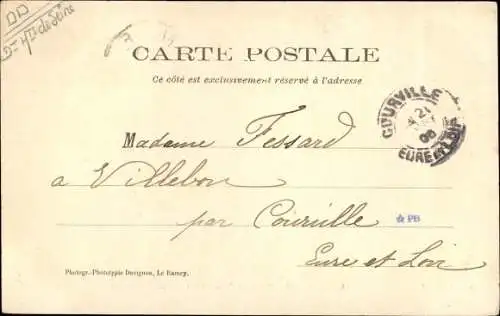 DD
CARTE POSTALE
Ce côté est exclusivement réservé à l'adresse
COURVILLE
21
EURE ET LOIR
Madame Fessard
a Villebon
par Courville
PB
Eure et Loir
Photogr.-Phototypie Davignon, Le Raincy.